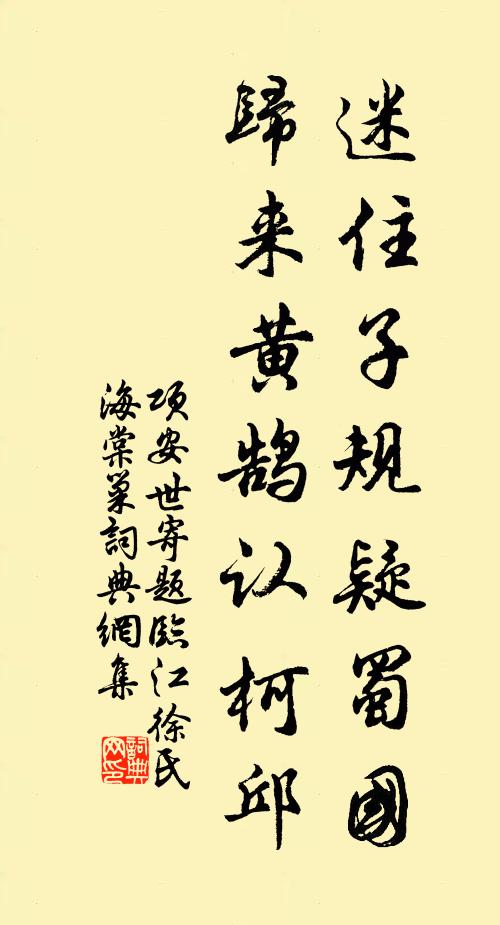 迷住子規疑蜀國
歸来黄鹄认柯邱
项安世寄题臨江徐氏
海棠巢詞典網集
詞典网印